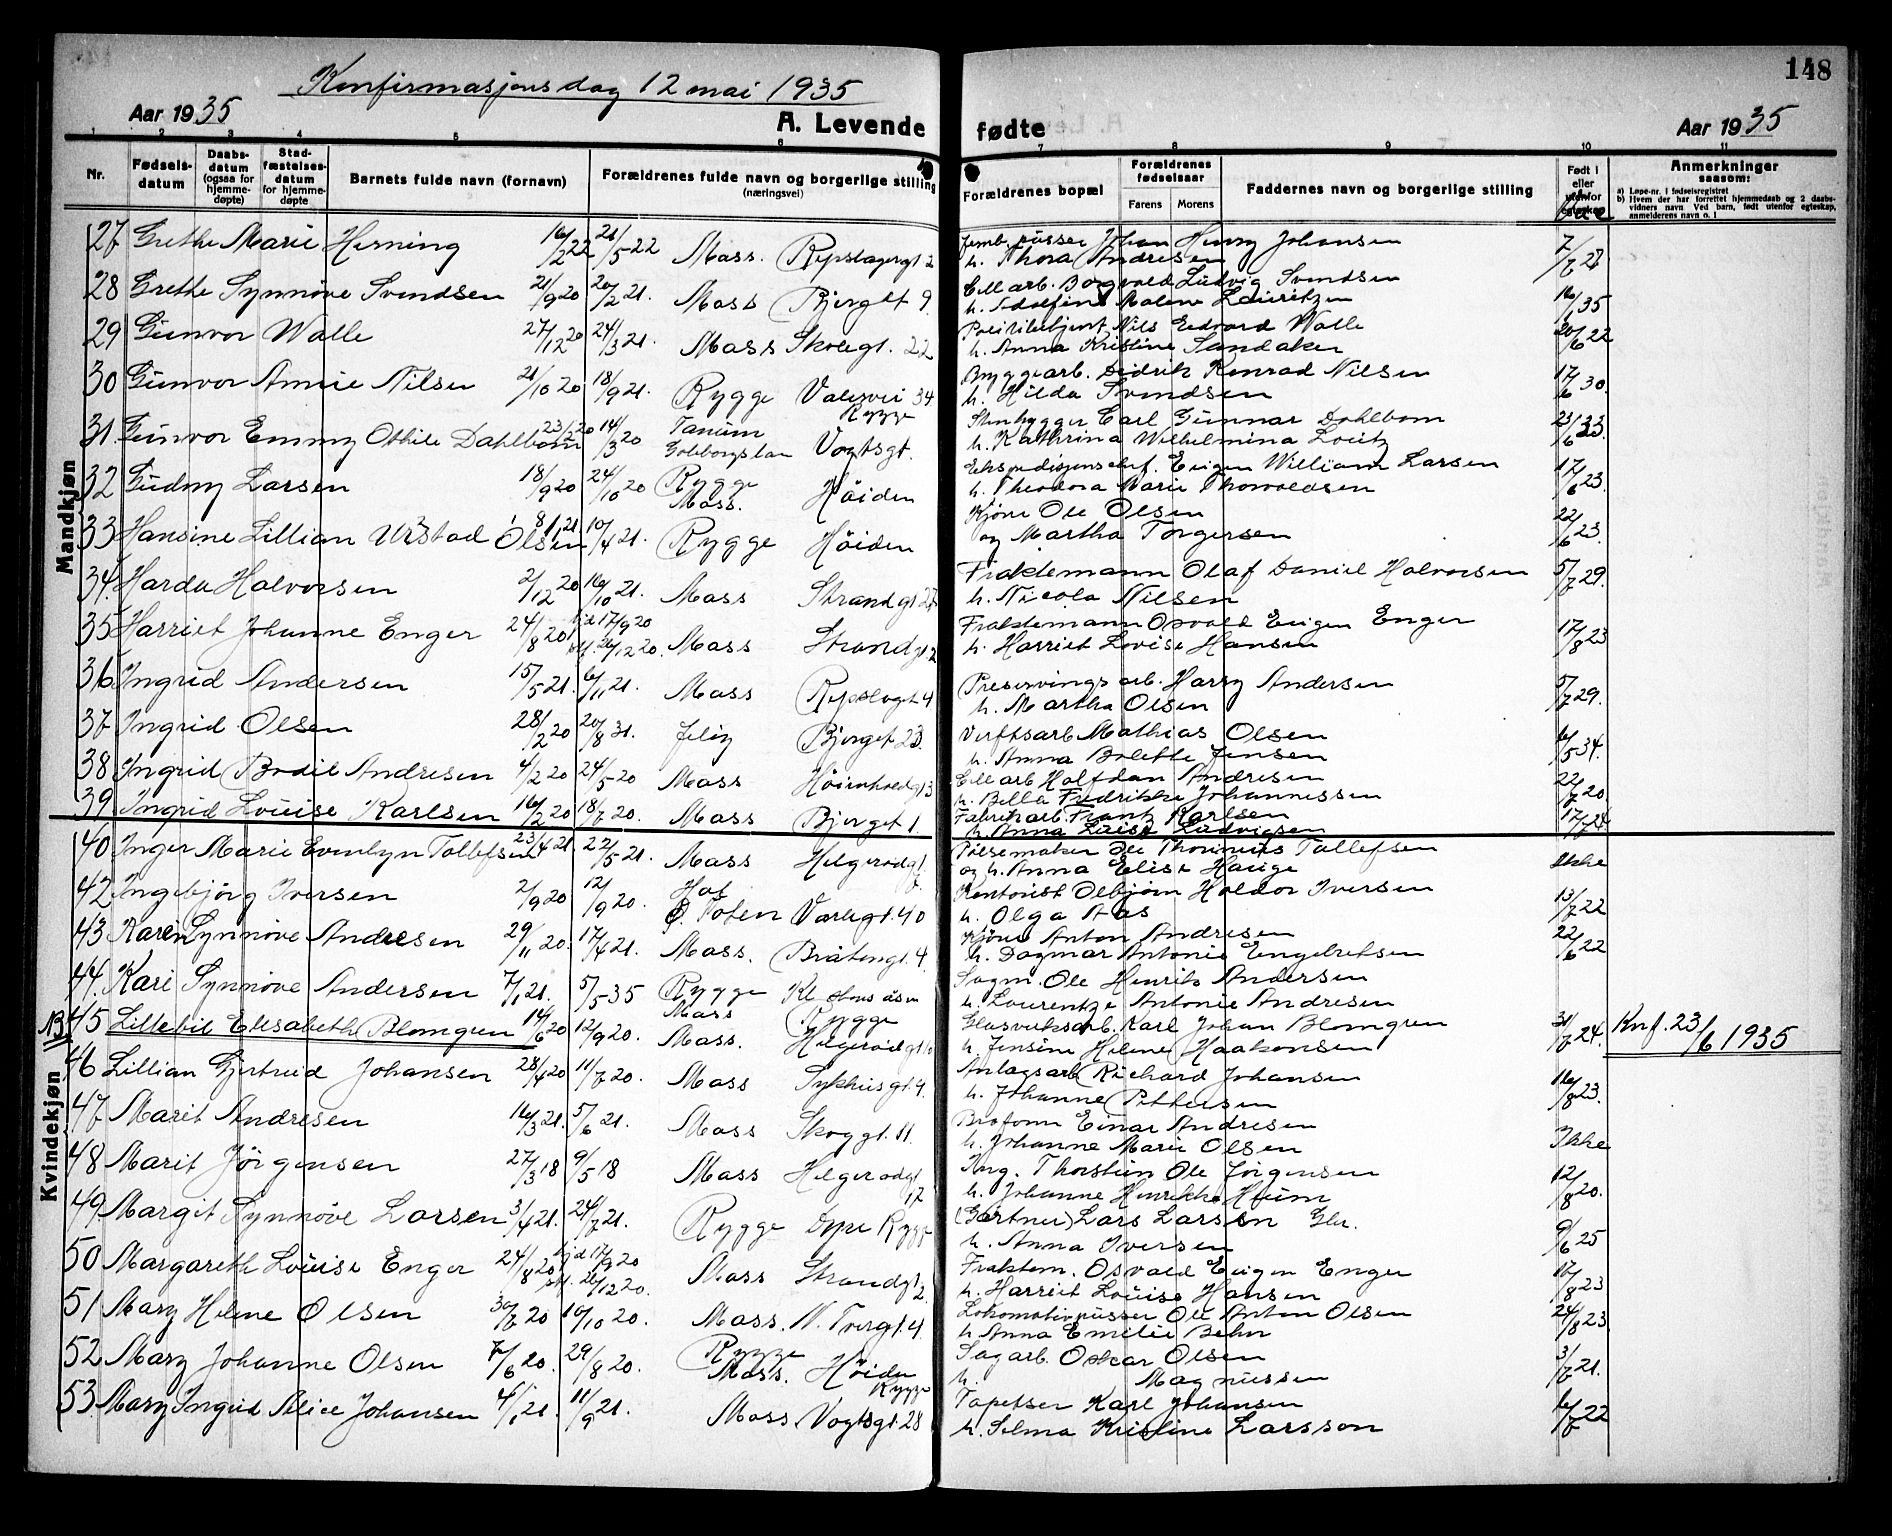 148
Konfirmasjonsdag 12 mai 1935
Aar 1935
A. Levende fødte
Aar 1935
1 2 3 4 5 6 7 8 9 10 11
Nr.
Fødsels-datum
Daabs-datum (ogsaa for hjemme-døpte)
Stad-fæstelses-datum for hjemme-døpte
Barnets fulde navn (fornavn)
Forældrenes fulde navn og borgerlige stilling (næringsvei)
Forældrenes bopæl
Forældrenes fødselsaar
Farens Morens
Faddernes navn og borgerlige stilling
Født i eller utenfor egteskap
Anmerkninger saasom:
a) Løpe-nr. i fødselsregistret
b) Hvem der har forrettet hjemmedaab og 2 daabs-vidners navn. Ved barn, født utenfor egteskap, anmelderens navn o. l.
Mandkjøn
27 Grethe Marie Herning 16/2 22 21/5 22 Moss. Repslagergt 2 Johan Henry Johansen
h. Thora Andresen
28 Grethe Synnøve Svendsen 21/9 20 20/2 21. Moss Bjerget 9. Cell arb. Borgvald Ludvig Svendsen 16/1 35
h. Malene Lauritzen
29 Gunvor Walle 27/12 20 24/3 21. Moss Skolegt. 22 Politibetjent Nils Edvard Walle 20/6 22
h. Anna Kristine Sandaker
30 Gunvor Annie Nilsen 21/10 20 18/9 21. Rygge Valesvei 34 Rygge Bryggearb. Didrik Konrad Nilsen 17/6 30
h. Hilda Svendsen
31. Gunvor Emmy Othile Dahlbom 23/1 20 14/3 20 Tanum Vogtsgt. Stenhygger Carl Gunnar Dahlbom 23/6 33.
h. Kathrina Wilhelmina
32 Gudny Larsen 18/9 20 24/10 20 Rygge Moss. Høiden Ekspedisjonschef. Eugen William Larsen 17/6 23.
h. Theodora Marie Thorvaldsen
33 Hansine Lillian Urstad Olsen 8/1 21. 10/4 21. Rygge Høiden Kjører Ole Olsen 22/6 23.
og Martha Torgersen
34 Harda Halvorsen 2/12 20 16/10 21. Moss Strandgt 27 Fraktemann Olaf Daniel Halvorsen 5/7 29.
h. Nicola Nilsen
35 Harriet Johanne Enger 24/8 20 hjd 17/9 20 stf. 26/12 20. Moss Strandgt 2 Fraktemann Osvald Eugen Enger 17/8 23
h. Harriet Lovise Hansen
36 Ingrid Andersen 15/5 21. 6/11 21. Moss Repslagt 4 Preserving arb. Harry Andersen 5/7 29.
h. Martha Olsen
37 Ingrid Olsen 28/2 20 20/8 31. Jeløy Bjerget 23. Verftsarb Mathias Olsen 6/5 34.
h. Anna Bolette Jensen
38 Ingrid Bodil Andresen 4/2 20 24/5 20 Moss Cell arb Halfdan Andresen 22/7 20.
h. Bella Fredrikke Johannessen
39 Ingrid Louise Karlsen 16/2 20 18/7 20. Moss Bjerget 1. Fabrikarb. Frantz Karlsen
h. Anna Louise Ludvigsen
Kvindekjøn
40 Inger Marie Evenlyn Tollefsen 23/4 21 22/5 21. Moss Helgerødgt. Pølsemaker Ole Thorinius Tollefsen Ikke
og h. Anna Elise Hauge
42 Ingebjørg Iversen 2/9 20 12/9 20. Hof Ø. Toten Varlegt. 40 Kontorist Asbjørn Haldor Iversen 13/7 22
h. Olga Aas
43 Karen Synnøve Andresen 29/11 20. 17/4 21. Moss. Bråtengt. 4. Kjører Anton Andresen 22/6 22
h. Dagmar Antonie Engebretsen
44. Kari Synnøve Andersen 7/1 21. 5/5 35 Rygge Moss Rygge Sagm. Ole Henrik Andersen
h. Laurentze Antonie Andresen
NB 45 Lillebil Elisabeth Blomgren 14/6 20 12/9 20. Moss. Helgerødgt Glasverksarb. Karl Johan Blomgren 31/7 24. Knf. 23/6 1935
h. Jensine Helene Haakonsen
46 Lillian Gjertrud Johansen 28/4 20 11/7 20. Moss Sykhusgt. 4. Anlagsarb Richard Johansen 16/8 23.
h. Johanne Pettersen
47 Marit Andresen 16/3 21. 5/6 21. Moss Skoggt. 11. Einar Andresen Ikke
h. Johanne Marie Olsen
48 Marit Jørgensen 27/3 18 9/5 18 Moss Helgerødgt 17 Ing. Thorstein Ole Jørgensen 12/8 20.
h. Johanne Henrikke Heum
49. Margit Synnøve Larsen 3/4 21. 24/7 21. Rygge Dype Rygge (Gartner) Lars Larsen 9/6 25
h. Anna Iversen
50 Margareth Louise Enger 24/8 20 hjd 17/9 20 stf. 26/12 20. Moss Strandgt. 2 Fraktem. Osvald Eugen Enger 17/8 23
h. Harriet Louise Hansen
51 Mary Helene Olsen 30/7 20 10/10 20. Moss. N. Tvergt. 4 Lokomotivpusser Ole Anton Olsen 24/8 23
h Anna Emilie Behn
52 Mary Johanne Olsen 7/6 20. 29/8 20. Rygge Moss. Høiden Rygge Sagarb. Oskar Olsen 3/7 21.
h. Magnussen
53. Mary Ingrid Alice Johansen 4/1 21. 11/9 21. Moss Vogtsgt 28 Tapetser Karl Johansen 6/7 22
h. Selma Kristine Larsson